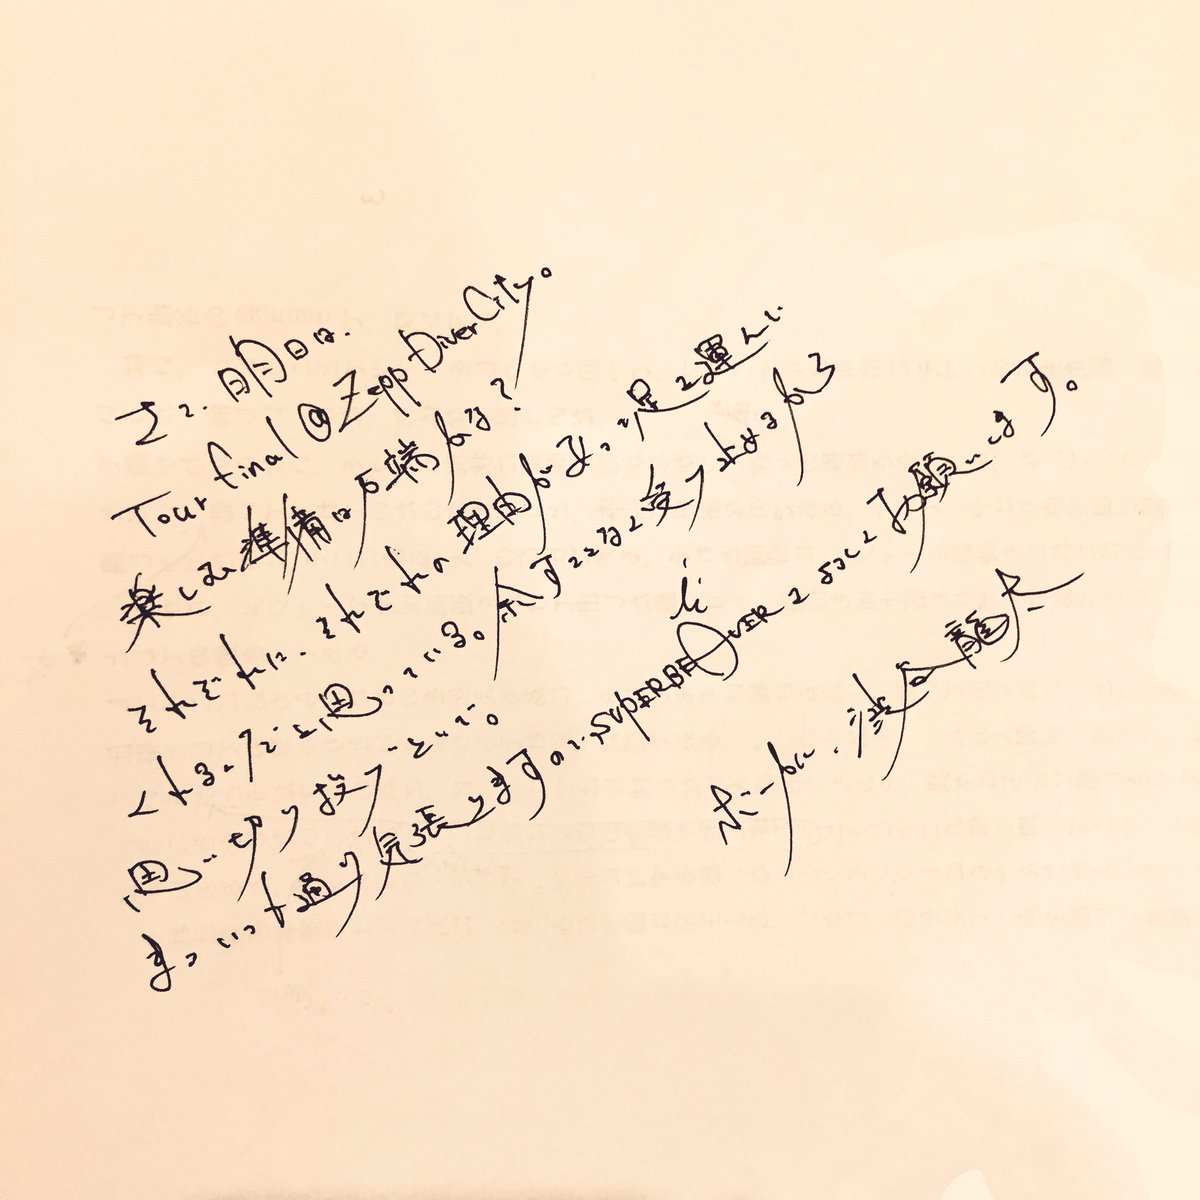 さて、明日は、
Tour final @ Zepp DiverCity。
楽しむ準備は万端かな?
それぞれに、それぞれの理由があって足を運んで
くれるんだと思っている。余すことなく受け止めるから
思い切り投げといで。
まぁ、いつも通り気張りますので、SUPERBEAVERをよろしくお願いします。
ボーカル、渋谷龍太